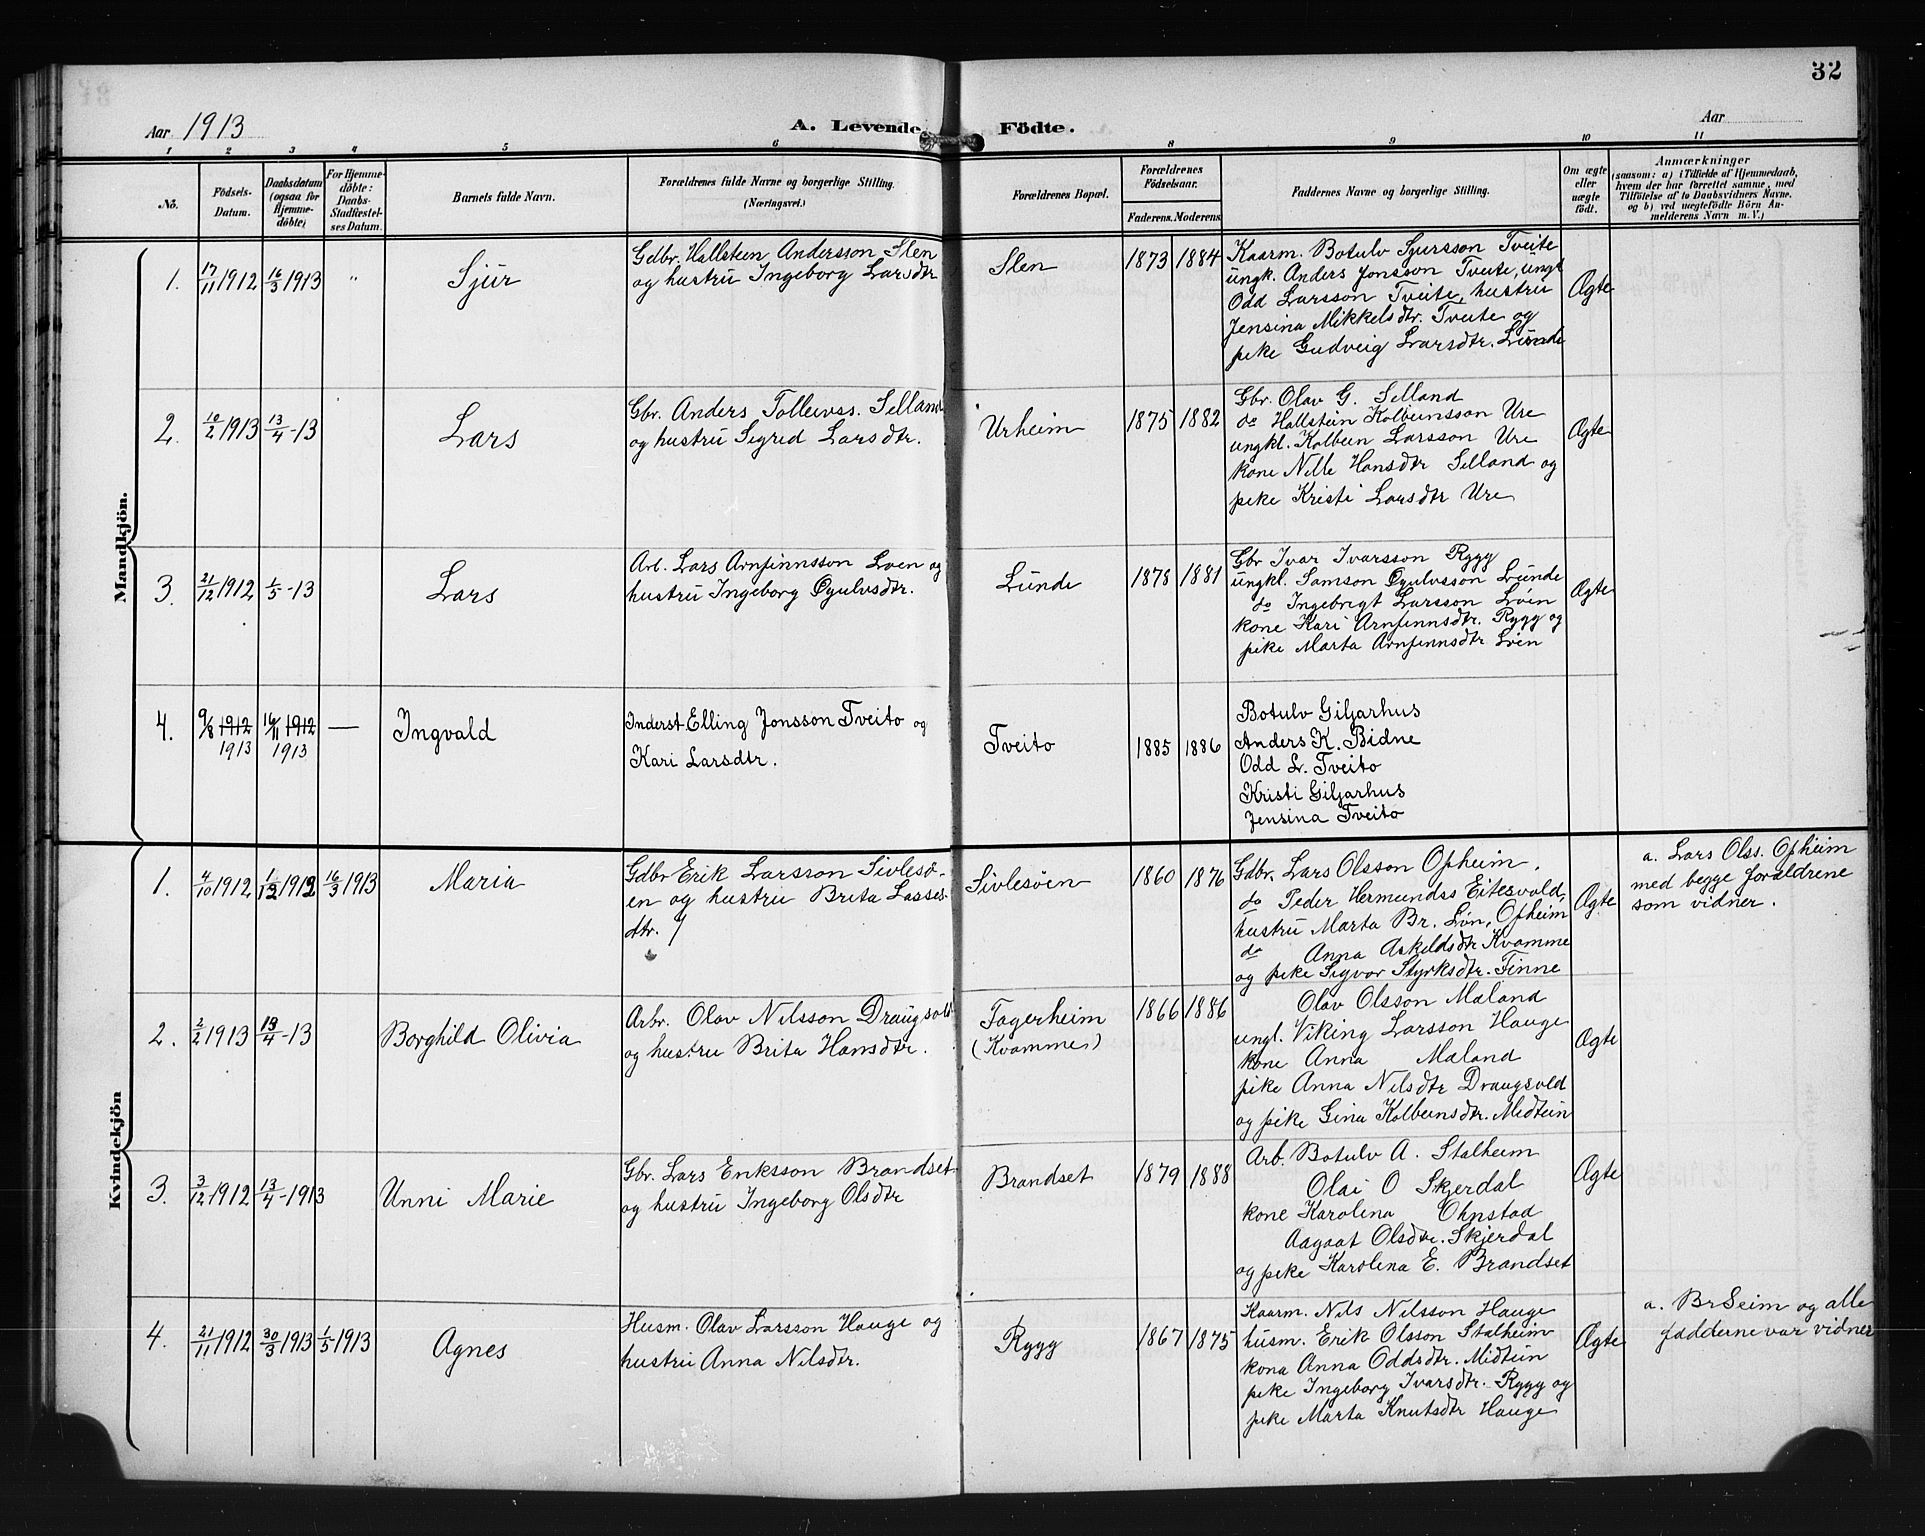 32
Aar 1913
A. Levende Födte.
Aar
1 2 3 4 5 6 8 9 10 11
No.
Födsels-
Datum.
Daabsdatum
(ogsaa for
Hjemme-
döbte)
For Hjemme-
döbte:
Daabs-
Stadfæstel-
ses Datum.
Barnets fulde Navn.
Forældrenes fulde Navne og borgerlige Stilling.
(Næringsvei.)
Forældrenes Bopæl.
Forældrenes
Födselsaar.
Faderens. Moderens.
Faddernes Navne og borgerlige Stilling.
Om ægte
eller
uægte
födt.
Anmærkninger
(saasom: a) i Tilfælde af Hjemmedaab,
hvem der har forrettet samme, med
Tilföielse af to Daabsvidners Navne.
og b) ved uægtefödte Börn An-
melderens Navn m. V.)
Mandkjön.
1. 17/11 1912 16/3 1913 " Sjur
Gdbr. Hallstein Andersson Slen
og hustru Ingeborg Larsdtr
Slen 1873 1884
Kaarm. Botulv Sjursson Tveite
ungk. Anders Jonsson Tveite, ungk
Odd Larsson Tveite, hustru
Jensina Mikkelsdtr. Tveite og
pike Gudveig Larsdtr. Lunde
Ægte
2. 10/2 1913 13/4-13 Lars
Gbr. Anders Tolleivss. Selland
og hustru Sigrid Larsdtr.
Urheim 1875 1882
Gbr. Olav G. Selland
do Hallstein Kolbeinsson Ure
ungkl. Kolbein Larsson Ure
kone Nille Hansdtr Selland og
pike Kristi Larsdtr Ure
Ægte
3. 21/12 1912 1/5-13 Lars
Arb. Lars Arnfinnsson Loen og
hustru Ingeborg Øyulvsdtr.
Lunde 1878 1881
Gbr Ivar Ivarsson Rygg
ungkl. Samson Øyulvsson Lunde
do Ingebrigt Larsson Løen
kone Kari Arnfinnsdtr. Rygg og
pike Marta Arnfinnsdtr Løen
Ægte
4. 9/8 1912 16/11 1912 — Ingvald
1913 1913
Inderst Elling Jonsson Tveito og
Kari Larsdtr.
Tveito 1885 1886
Botulv Giljarhus
Anders K. Bidne
Odd L. Tveito
Kristi Giljarhus
Jensina Tveito
Kvindekjön
1. 4/10 1912 1/12 1912 16/3 1913 Maria
Gdbr Erik Larsson Sivlesø-
en og hustru Brita Lasses-
dtr.
Sivlesøen 1860 1876
Gdbr. Lars Olsson Opheim,
do Peder Hermundss Eitesvold,
hustru Marta Br. Løn, Opheim
do Anna Askeldsdtr Kvamme
og pike Sigvor Styrksdtr. Finne
Ægte
a. Lars Olss. Opheim
med begge forældrene
som vidner.
2. 2/2 1913 13/4-13 Borghild Olivia
Arbr. Olav Nilsson Draugsvold
og hustru Brita Hansdtr.
Fagerheim
(Kvamme)
1866 1886
Olav Olsson Mæland
ungl. Viking Larsson Hauge
kone Anna Mæland
pike Anna Nilsdtr Draugsvold
og pike Gina Kolbeinsdtr. Midtun
Ægte
3. 3/12 1912 13/4-1913 Unni Marie
Gbr. Lars Eriksson Brandset
og hustru Ingeborg Olsdtr
Brandset 1879 1888
Arb. Botulv A. Stalheim
Olai O Skjerdal
kone Karolina Ohnstad
Aagaat Olsdtr. Skjerdal
og pike Karolina E. Brandset
Ægte
4. 21/11 1912 30/3 1913 1/5 1913 Agnes
Husm. Olav Larsson Hauge og
hustru Anna Nilsdtr.
Rygg 1867 1875
Kaarm. Nils Nilsson Hauge
husm. Erik Olsson Stalheim
kona Anna Oddsdtr. Midtun
pike Ingeborg Ivarsdtr. Rygg og
pike Marta Knutsdtr Hauge
Ægte
a. Br Seim og alle
fadderne var vidner